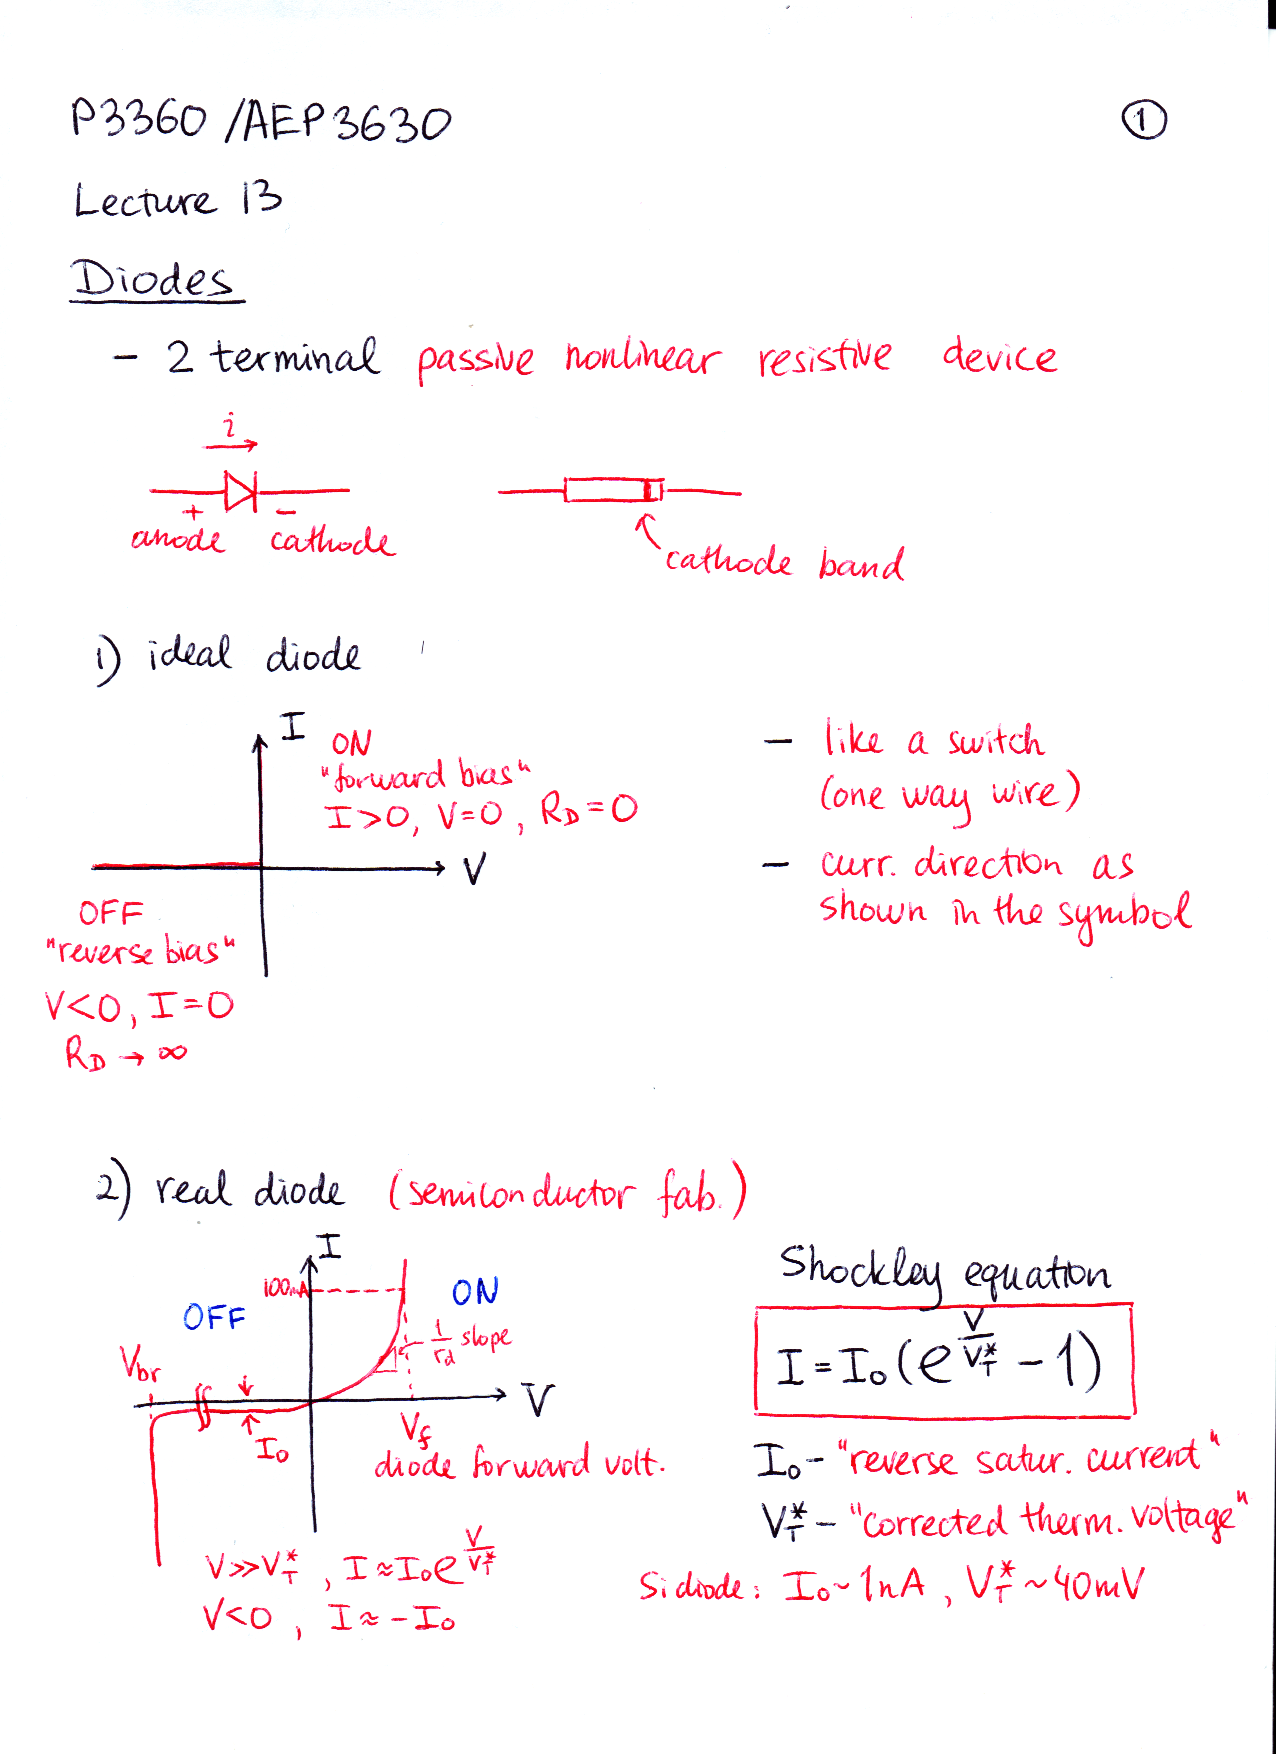 P3360 /AEP3630
①
Lecture 13
Diodes
- 2 terminal passive nonlinear resistive device
i
+ -
anode cathode
cathode band
1) ideal diode
I
ON
"forward bias"
I>0, V=0, R_D=0
V
OFF
"reverse bias"
V<0, I=0
R_D → ∞
- like a switch
(one way wire)
- curr. direction as
shown in the symbol
2) real diode (semiconductor fab.)
I
100mA
OFF
ON
1/r_d slope
V_br
V
I_o
V_f
diode forward volt.
V≫V_T^*, I≈I_o e^(V/V_T^*)
V<0, I≈-I_o
Shockley equation
I=I_o(e^(V/V_T^*) - 1)
I_o - "reverse satur. current"
V_T^* - "corrected therm. voltage"
Si diode: I_o~1nA, V_T^*~40mV